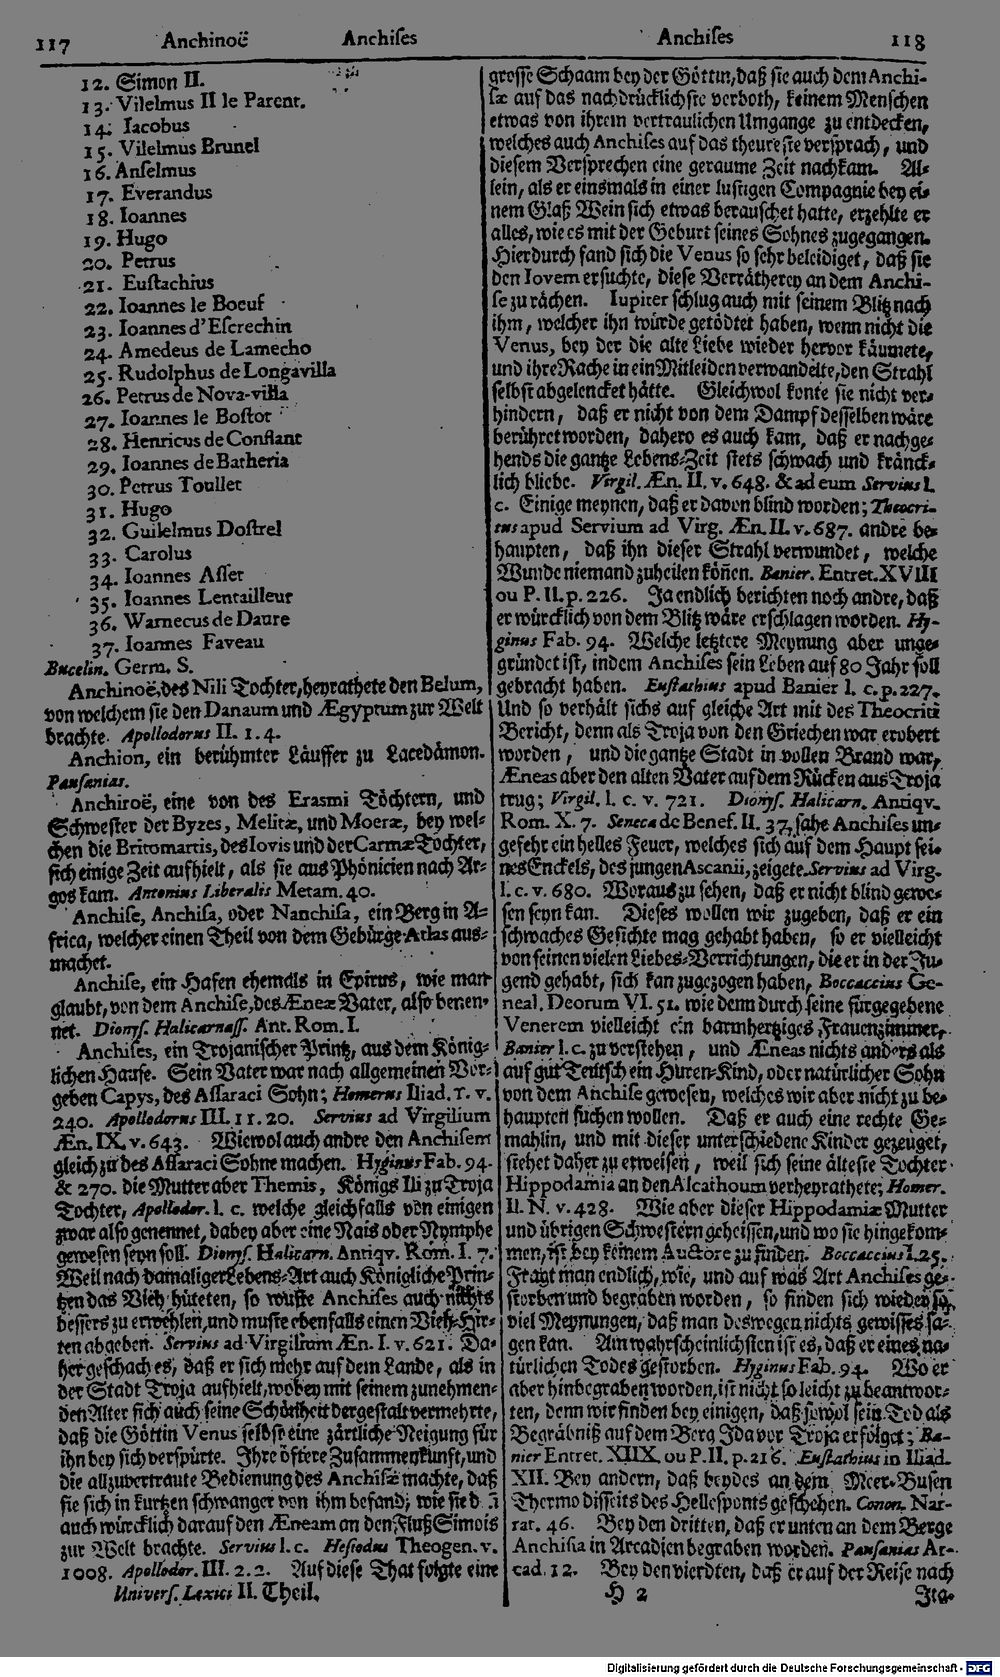 117 Anchinoë Anchises
12. Simon II.
13. Vilelmus II le Parent.
14. Iacobus
15. Vilelmus Brunel
16. Anselmus
17. Everandus
18. Ioannes
19. Hugo
20. Petrus
21. Eustachius
22. Ioannes le Boeuf
23. Ioannes d'Escrechin
24. Amedeus de Lamecho
25. Rudolphus de Longavilla
26. Petrus de Nova-villa
27. Ioannes le Bostor
28. Henricus de Conflant
29. Ioannes de Batheria
30. Petrus Toullet
31. Hugo
32. Guilelmus Dostrel
33. Carolus
34. Ioannes Asset
35. Ioannes Lentailleur
36. Warnecus de Daure
37. Ioannes Faveau
Bucelin. Germ. S.
Anchinoë, des Nili Tochter, heyrathete den Belum,
von welchem sie den Danaum und Ægyptum zur Welt
brachte. Apollodorus II. 1. 4.
Anchion, ein berühmter Läuffer zu Lacedämon.
Pausanias.
Anchiroë, eine von des Erasmi Töchtern, und
Schwester der Byzes, Melitæ, und Moeræ, bey wel-
chen die Britomartis, des Iovis und der Carmæ Tochter,
sich einige Zeit aufhielt, als sie aus Phönicien nach Ar-
gos kam. Antonius Liberalis Metam. 40.
Anchise, Anchisa, oder Nanchisa, ein Berg in A-
frica, welcher einen Theil von dem Gebürge Atlas aus-
machet.
Anchise, ein Hafen ehemals in Epirus, wie man
glaubt, von dem Anchise, des Æneæ Vater, also benen-
net. Dionys. Halicarnass. Ant. Rom. I.
Anchises, ein Trojanischer Printz, aus dem König-
lichen Hause. Sein Vater war nach allgemeinen Vor-
geben Capys, des Assaraci Sohn; Homerus Iliad. Υ. v.
240. Apollodorus III. 11. 20. Servius ad Virgilium
Æn. IX. v. 643. Wiewol auch andre den Anchisem
gleich zu des Assaraci Sohne machen. Hyginus Fab. 94.
& 270. die Mutter aber Themis, Königs Ili zu Troja
Tochter, Apollodor. l. c. welche gleichfalls von einigen
zwar also genennet, dabey aber eine Nais oder Nymphe
gewesen seyn soll. Dionys. Halicarn. Antiqv. Rom. I. 7.
Weil nach damaliger Lebens-Art auch Königliche Prin-
tzen das Vieh hüteten, so wuste Anchises auch nichts
bessers zu erwehlen, und muste ebenfalls einen Vieh-Hir-
ten abgeben. Servius ad Virgilium Æn. I. v. 621. Da-
her geschach es, daß er sich mehr auf dem Lande, als in
der Stadt Troja aufhielt, wobey mit seinem zunehmen-
den Alter sich auch seine Schönheit dergestalt vermehrte,
daß die Göttin Venus selbst eine zärtliche Neigung für
ihn bey sich verspürte. Ihre öftere Zusammenkunft, und
die allzuvertraute Bedienung des Anchisæ machte, daß
sie sich in kurtzen schwanger von ihm befand; wie sie
auch würcklich darauf den Æneam an den Fluß Simois
zur Welt brachte. Servius l. c. Hesiodus Theogen. v.
1008. Apollodor. III. 2. 2. Auf diese That folgte eine
Univers. Lexici II. Theil.
Anchises 118
grosse Schaam bey der Göttin, daß sie auch dem Anchi-
sæ auf das nachdrücklichste verboth, keinem Menschen
etwas von ihrem vertraulichen Umgange zu entdecken,
welches auch Anchises auf das theureste versprach, und
diesem Versprechen eine geraume Zeit nachkam. Al-
lein, als er einsmals in einer lustigen Compagnie bey ei-
nem Glaß Wein sich etwas berauschet hatte, erzehlte er
alles, wie es mit der Geburt seines Sohnes zugegangen.
Hierdurch fand sich die Venus so sehr beleidiget, daß sie
den Iovem ersuchte, diese Verrätherey an dem Anchi-
se zu rächen. Iupiter schlug auch mit seinem Blitz nach
ihm, welcher ihn würde getödtet haben, wenn nicht die
Venus, bey der die alte Liebe wieder hervor käumete,
und ihre Rache in ein Mitleiden verwandelte, den Strahl
selbst abgelencket hätte. Gleichwol konte sie nicht ver-
hindern, daß er nicht von dem Dampf desselben wäre
berühret worden, dahero es auch kam, daß er nachge-
hends die gantze Lebens-Zeit stets schwach und kränck-
lich bliebe. Virgil. Æn. II. v. 648. & ad eum Servius l.
c. Einige meynen, daß er davon blind worden; Theocri-
tus apud Servium ad Virg. Æn. II. v. 687. andre be-
haupten, daß ihn dieser Strahl verwundet, welche
Wunde niemand zuheilen köñen. Banier. Entret. XVIII
ou P. II. p. 226. Ja endlich berichten noch andre, daß
er würcklich von dem Blitz wäre erschlagen worden. Hy-
ginus Fab. 94. Welche letztere Meynung aber unge-
gründet ist, indem Anchises sein Leben auf 80 Jahr soll
gebracht haben. Eustathius apud Banier l. c. p. 227.
Und so verhält sichs auf gleiche Art mit des Theocriti
Bericht, denn als Troja von den Griechen war erobert
worden, und die gantze Stadt in vollen Brand war,
Æneas aber den alten Vater auf dem Rücken aus Troja
trug; Virgil. l. c. v. 721. Dionys. Halicarn. Antiqv.
Rom. X. 7. Seneca de Benef. II. 37. sahe Anchises un-
gefehr ein helles Feuer, welches sich auf dem Haupt sei-
nes Enckels, des jungen Ascanii, zeigete. Servius ad Virg.
l. c. v. 680. Woraus zu sehen, daß er nicht blind gewe-
sen seyn kan. Dieses wollen wir zugeben, daß er ein
schwaches Gesichte mag gehabt haben, so er vielleicht
von seinen vielen Liebes-Verrichtungen, die er in der Ju-
gend gehabt, sich kan zugezogen haben, Boccaccius Ge-
neal. Deorum VI. 51. wie denn durch seine fürgegebene
Venerem vielleicht ein barmhertziges Frauenzimmer,
Banier l. c. zu verstehen, und Æneas nichts anders als
auf gut Teutsch ein Huren-Kind, oder natürlicher Sohn
von dem Anchise gewesen, welches wir aber nicht zu be-
haupten suchen wollen. Daß er auch eine rechte Ge-
mahlin, und mit dieser unterschiedene Kinder gezeuget,
stehet daher zu erweisen, weil sich seine älteste Tochter
Hippodamia an den Alcathoum verheyrathete; Homer.
Il. N. v. 428. Wie aber dieser Hippodamiæ Mutter
und übrigen Schwestern geheissen, und wo sie hingekom-
men, ist bey keinem Auctore zu finden. Boccaccius l. 25.
Fragt man endlich, wie, und auf was Art Anchises ge-
storben und begraben worden, so finden sich wieder so
viel Meynungen, daß man deswegen nichts gewisses sa-
gen kan. Am wahrscheinlichsten ist es, daß er eines na-
türlichen Todes gestorben. Hyginus Fab. 94. Wo er
aber hinbegraben worden, ist nicht so leicht zu beantwor-
ten, denn wir finden bey einigen, daß sowol sein Tod als
Begräbniß auf dem Berg Ida vor Troja erfolget; Ba-
nier Entret. XIIX. ou P. II. p. 216. Eustathius in Iliad.
XII. Bey andern, daß beydes an dem Meer-Busen
Thermo disseits des Hellesponts geschehen. Conon. Nar-
rat. 46. Bey den dritten, daß er unten an dem Berge
Anchisia in Arcadien begraben worden. Pausanias Ar-
cad. 12. Bey den vierdten, daß er auf der Reise nach
H 2 Ita-
Digitalisierung gefördert durch die Deutsche Forschungsgemeinschaft - DFG